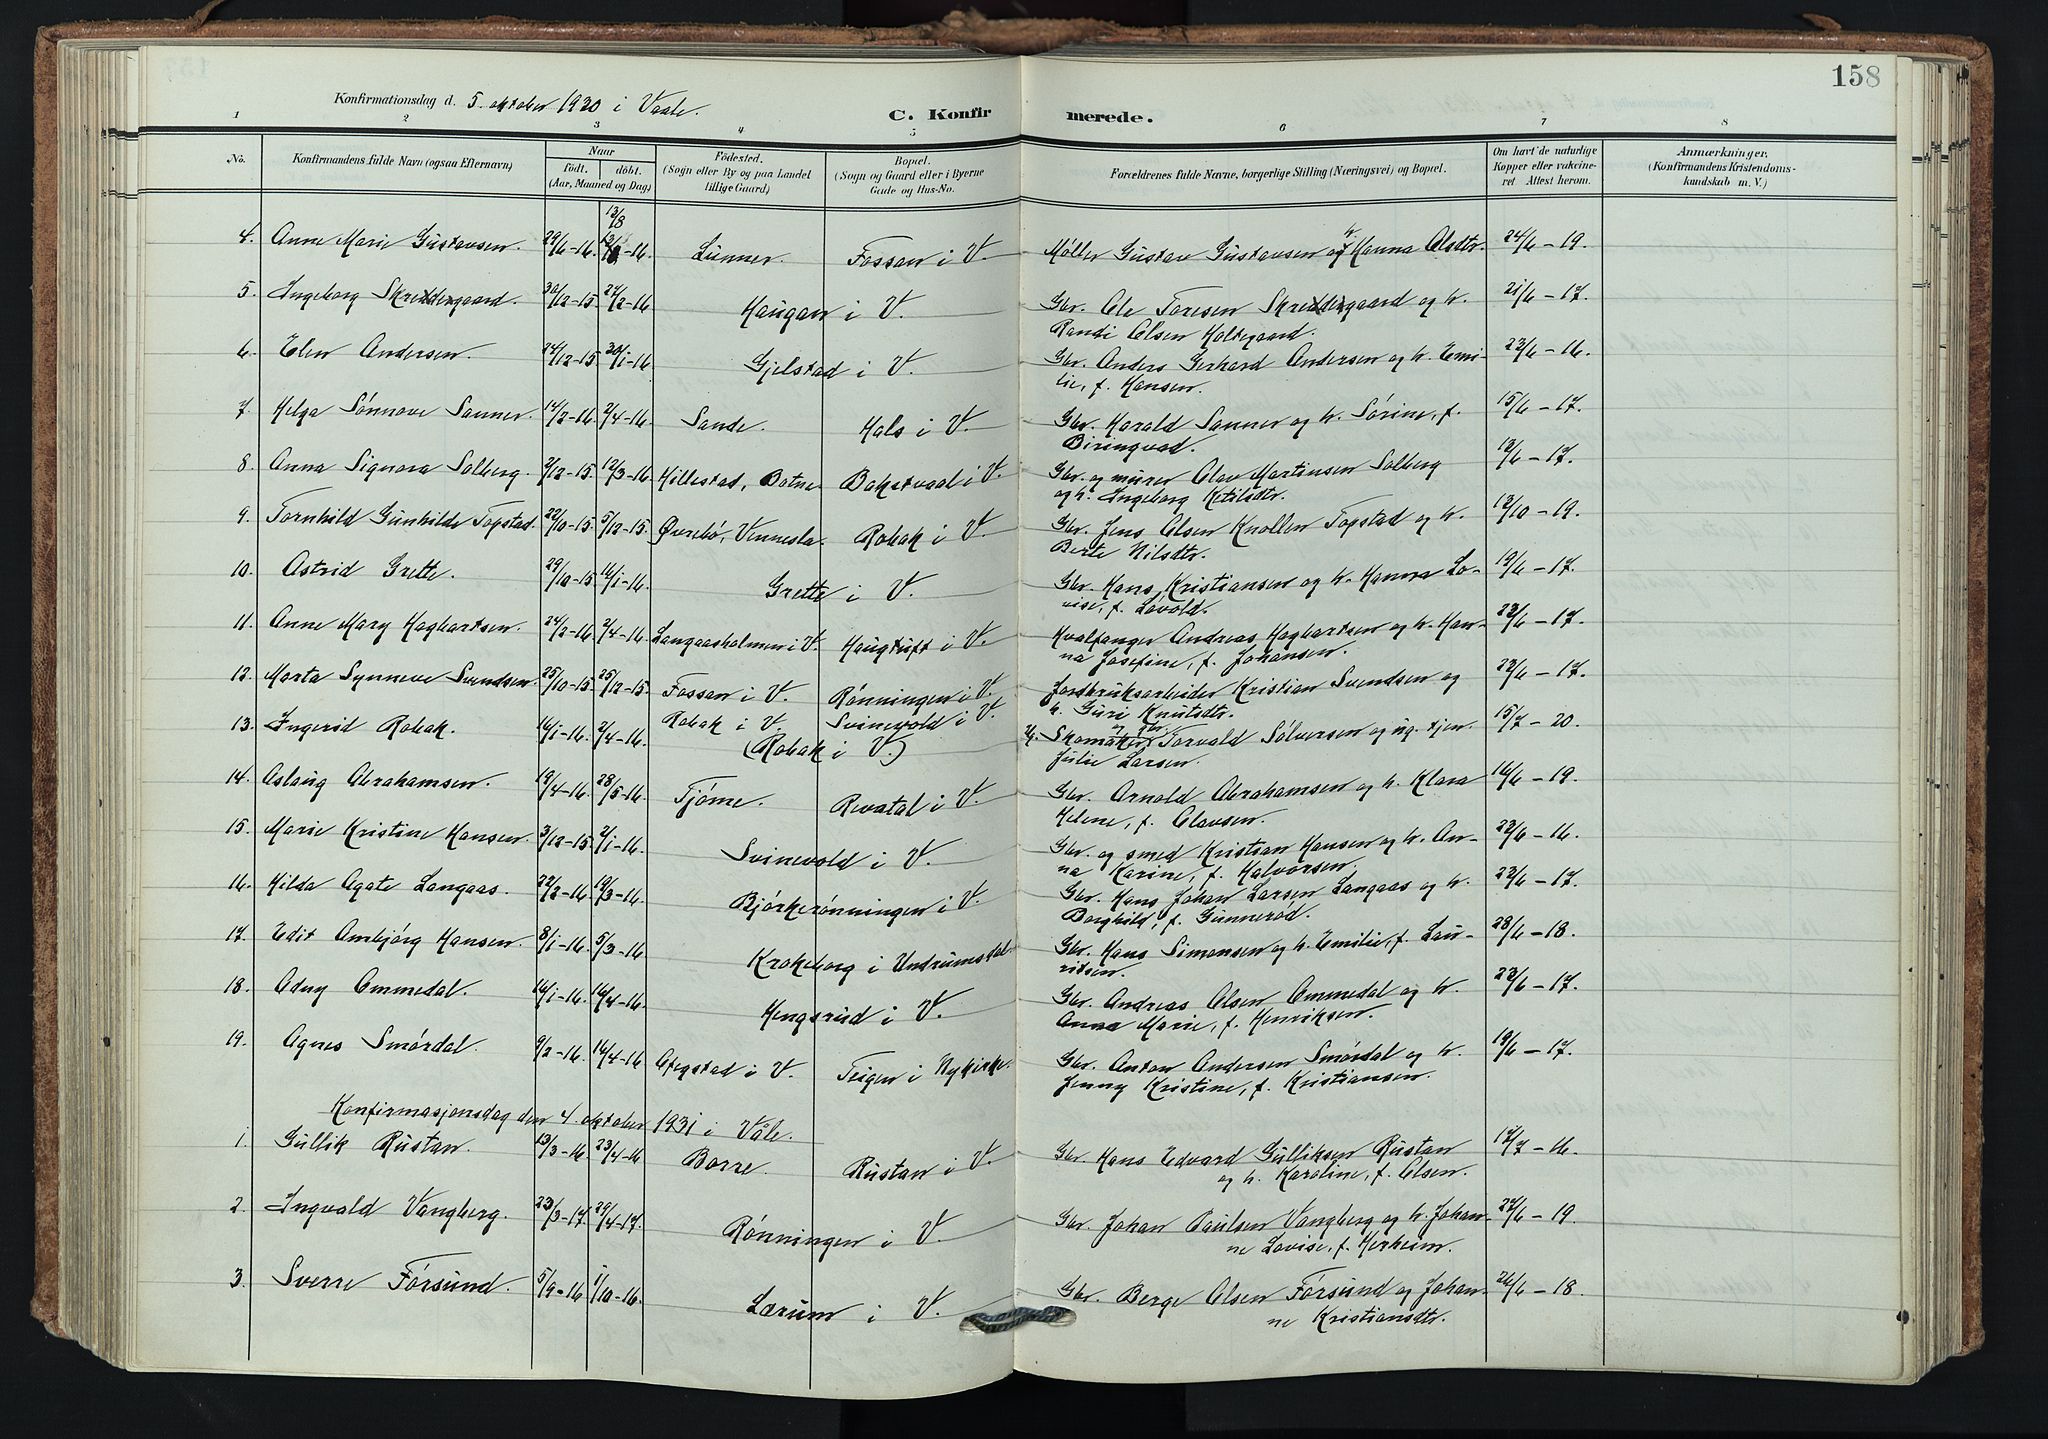 158
Konfirmationsdag d. 5. oktober 1930 i Vaale.
C. Konfirmerede.
1 2 3 4 5 6 7 8
No. Konfirmandens fulde Navn (ogsaa Efternavn) Naar födt. döbt. (Aar, Maaned og Dag) Födested. (Sogn eller By og paa Landet tillige Gaard) Bopæl. (Sogn og Gaard eller i Byerne Gade og Hus-No. Forældrenes fulde Navne, borgerlige Stilling (Næringsvei) og Bopæl. Om havt de naturlige Kopper eller vakcineret Attest herom. Anmærkninger. (Konfirmandens Kristendomskundskab m. V.)
13/8
4. Anne Marie Gustavsen. 29/6-16. -16. Lunner. Fossan i V. Møller Gustav Gustavsen og h. Hanna Olsdtr. 24/6-19.
5. Ingeborg Skreddergaard. 30/12-15. 27/2-16. Haugan i V. Gbr. Ole Toresen Skreddergaard og h. 21/6-17.
Randi Olsen Holtegaard.
6. Elen Andersen. 24/12-15. 30/1-16. Gjelstad i V. Gbr. Anders Gerhard Andersen og h. Emi- 23/6-16.
lie, f. Hansen.
7. Helga Sønnove Sanner. 14/2-16. 2/4-16. Sande. Hals i V. Gbr. Harald Sanner og h. Sørine, f. 15/6-17.
Biringvad.
8. Anna Signora Solberg. 2/12-15. 12/3-16. Hillestad, Botne. Bakstvaal i V. Gbr. og murer Olav Martinsen Solberg 12/6-17.
og h. Ingeborg Ketilsdtr.
9. Tornhild Gunhilde Topstad. 22/10-15. 5/12-15. Øvrebø, Vennesla. Robak i V. Gbr. Jens Olsen Knollen Topstad og h. 12/10-19.
Berte Nilsdtr.
10. Astrid Grette. 29/10-15. 16/1-16. Grette i V. Gbr. Hans Kristiansen og h. Hanna Lo- 19/6-17.
vise, f. Løvold.
11. Anne Mary Hagbartsen. 24/2-16. 2/4-16. Langaasholmen i V. Haugtuft i V. Hvalfanger Andreas Hagbartsen og h. Han- 22/6-17.
na Josefine, f. Johansen.
12. Marta Synneve Svendsen. 25/10-15. 25/12-15. Fossan i V. Rønningen i V. Jordbruksarbeider Kristian Svendsen og 22/6-17.
h. Guri Knutsdtr.
13. Ingerid Robak. 16/1-16. 2/4-16. Robak i V. Svinevold i V. Skomaker og gbr. Torvald Sølversen og ug. tjen. 15/7-20.
(Robak i V.) Julie Larsen.
14. Aslaug Abrahamsen. 19/4-16. 28/5-16. Tjøme. Revatal i V. Gbr. Arnold Abrahamsen og h. Klara 16/6-19.
Helene, f. Olavsen.
15. Marie Kristine Hansen. 3/12-15. 2/1-16. Svinevold i V. Gbr. og smed Kristian Hansen og h. An- 22/6-16.
na Karine, f. Halvorsen.
16. Hilda Agate Langaas. 22/2-16. 19/3-16. Bjørkerønningen i V. Gbr. Hans Johan Larsen Langaas og h. 22/6-17.
Borghild, f. Gunnerød.
17. Edit Ambjørg Hansen. 8/1-16. 5/3-16. Krakeborg i Undrumsdal. Gbr. Hans Simonsen og h. Emilie, f. Lau- 28/6-18.
ritsen.
18. Adny Ommedal. 16/1-16. 16/4-16. Hengsrud i V. Gbr. Andreas Olsen Ommedal og h. 22/6-17.
Anna Marie, f. Henriksen.
19. Agnes Smørdal. 9/2-16. 16/4-16. Afegstad i V. Teigen i Nykirke. Gbr. Anton Andersen Smørdal og h. 19/6-17.
Jenny Kristine, f. Kristiansen.
Konfirmasjonsdag den 4 oktober 1931 i Våle.
1. Gullik Rustan. 13/3-16. 23/4-16 Borre. Rustan i V. Gbr. Hans Edvard Gulliksen Rustan 17/7-16.
og h. Karoline, f. Olsen.
2. Ingvald Vangberg. 23/3-17. 29/4-17. Rønningen i V. Gbr. Johan Paulsen Vangberg og h. Johan- 27/6-19.
ne Lovise, f. Herheim.
3. Sverre Førsund. 5/9-16. 1/10-16. Lærum i V. Gbr. Berge Olsen Førsund og Johan- 26/6-18.
ne Kristiansdtr.